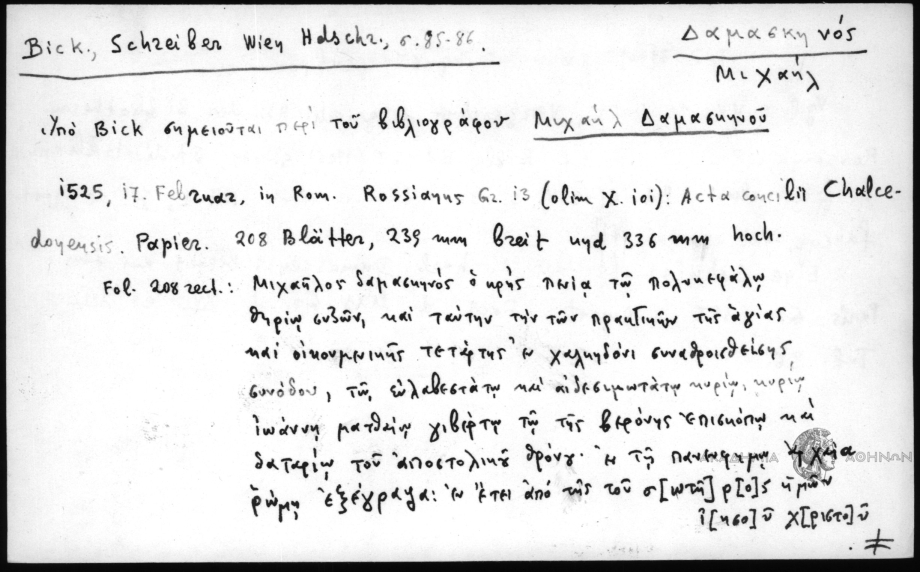 Bick, Schreiber Wien Hdschr., σ. 85-86.
Δαμασκηνός
Μιχαήλ
Ὑπὸ Bick σημειοῦται περὶ τοῦ βιβλιογράφου Μιχαήλ Δαμασκηνοῦ
1525, 17. Februar, in Rom. Rossianus Gr. 13 (olim X. 101): Acta concilii Chalce-
donensis. Papier. 208 Blätter, 239 mm breit und 336 mm hoch.
Fol. 208 rect.: Μιχαῆλος δαμασκηνός ὁ κρὴς πενίᾳ τῷ πολυκεφάλῳ
θηρίῳ συζῶν, καὶ ταύτην τὴν τῶν πρακτικῶν τῆς ἁγίας
καὶ οἰκουμενικῆς τετάρτης ἐν χαλκηδόνι συναθροισθείσης
συνόδου, τῷ εὐλαβεστάτῳ καὶ αἰδεσιμωτάτῳ κυρίῳ, κυρίῳ
ἰωάννῃ ματθείῳ γιβέρτῳ τῷ τῆς βερόνης ἐπισκόπῳ καὶ
δαταρίῳ τοῦ ἀποστολικοῦ θρόνου· ἐν τῇ πανευφήμῳ
ῥώμῃ ἐξέγραψα: ἐν ἔτει ἀπὸ τῆς τοῦ σ[ωτῆ]ρ[ο]ς ἡμῶν
ἰ[ησο]ῦ χ[ριστο]ῦ
ΑΘΗΝΩΝ